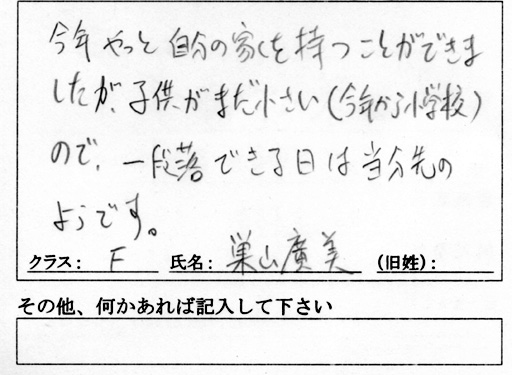 今年やっと自分の家を持つことができま
したが、子供がまだ小さい(今年から小学校)
ので、一段落できる日は当分先の
ようです。
クラス: F 氏名: 巣山廣美 (旧姓):
その他、何かあれば記入して下さい